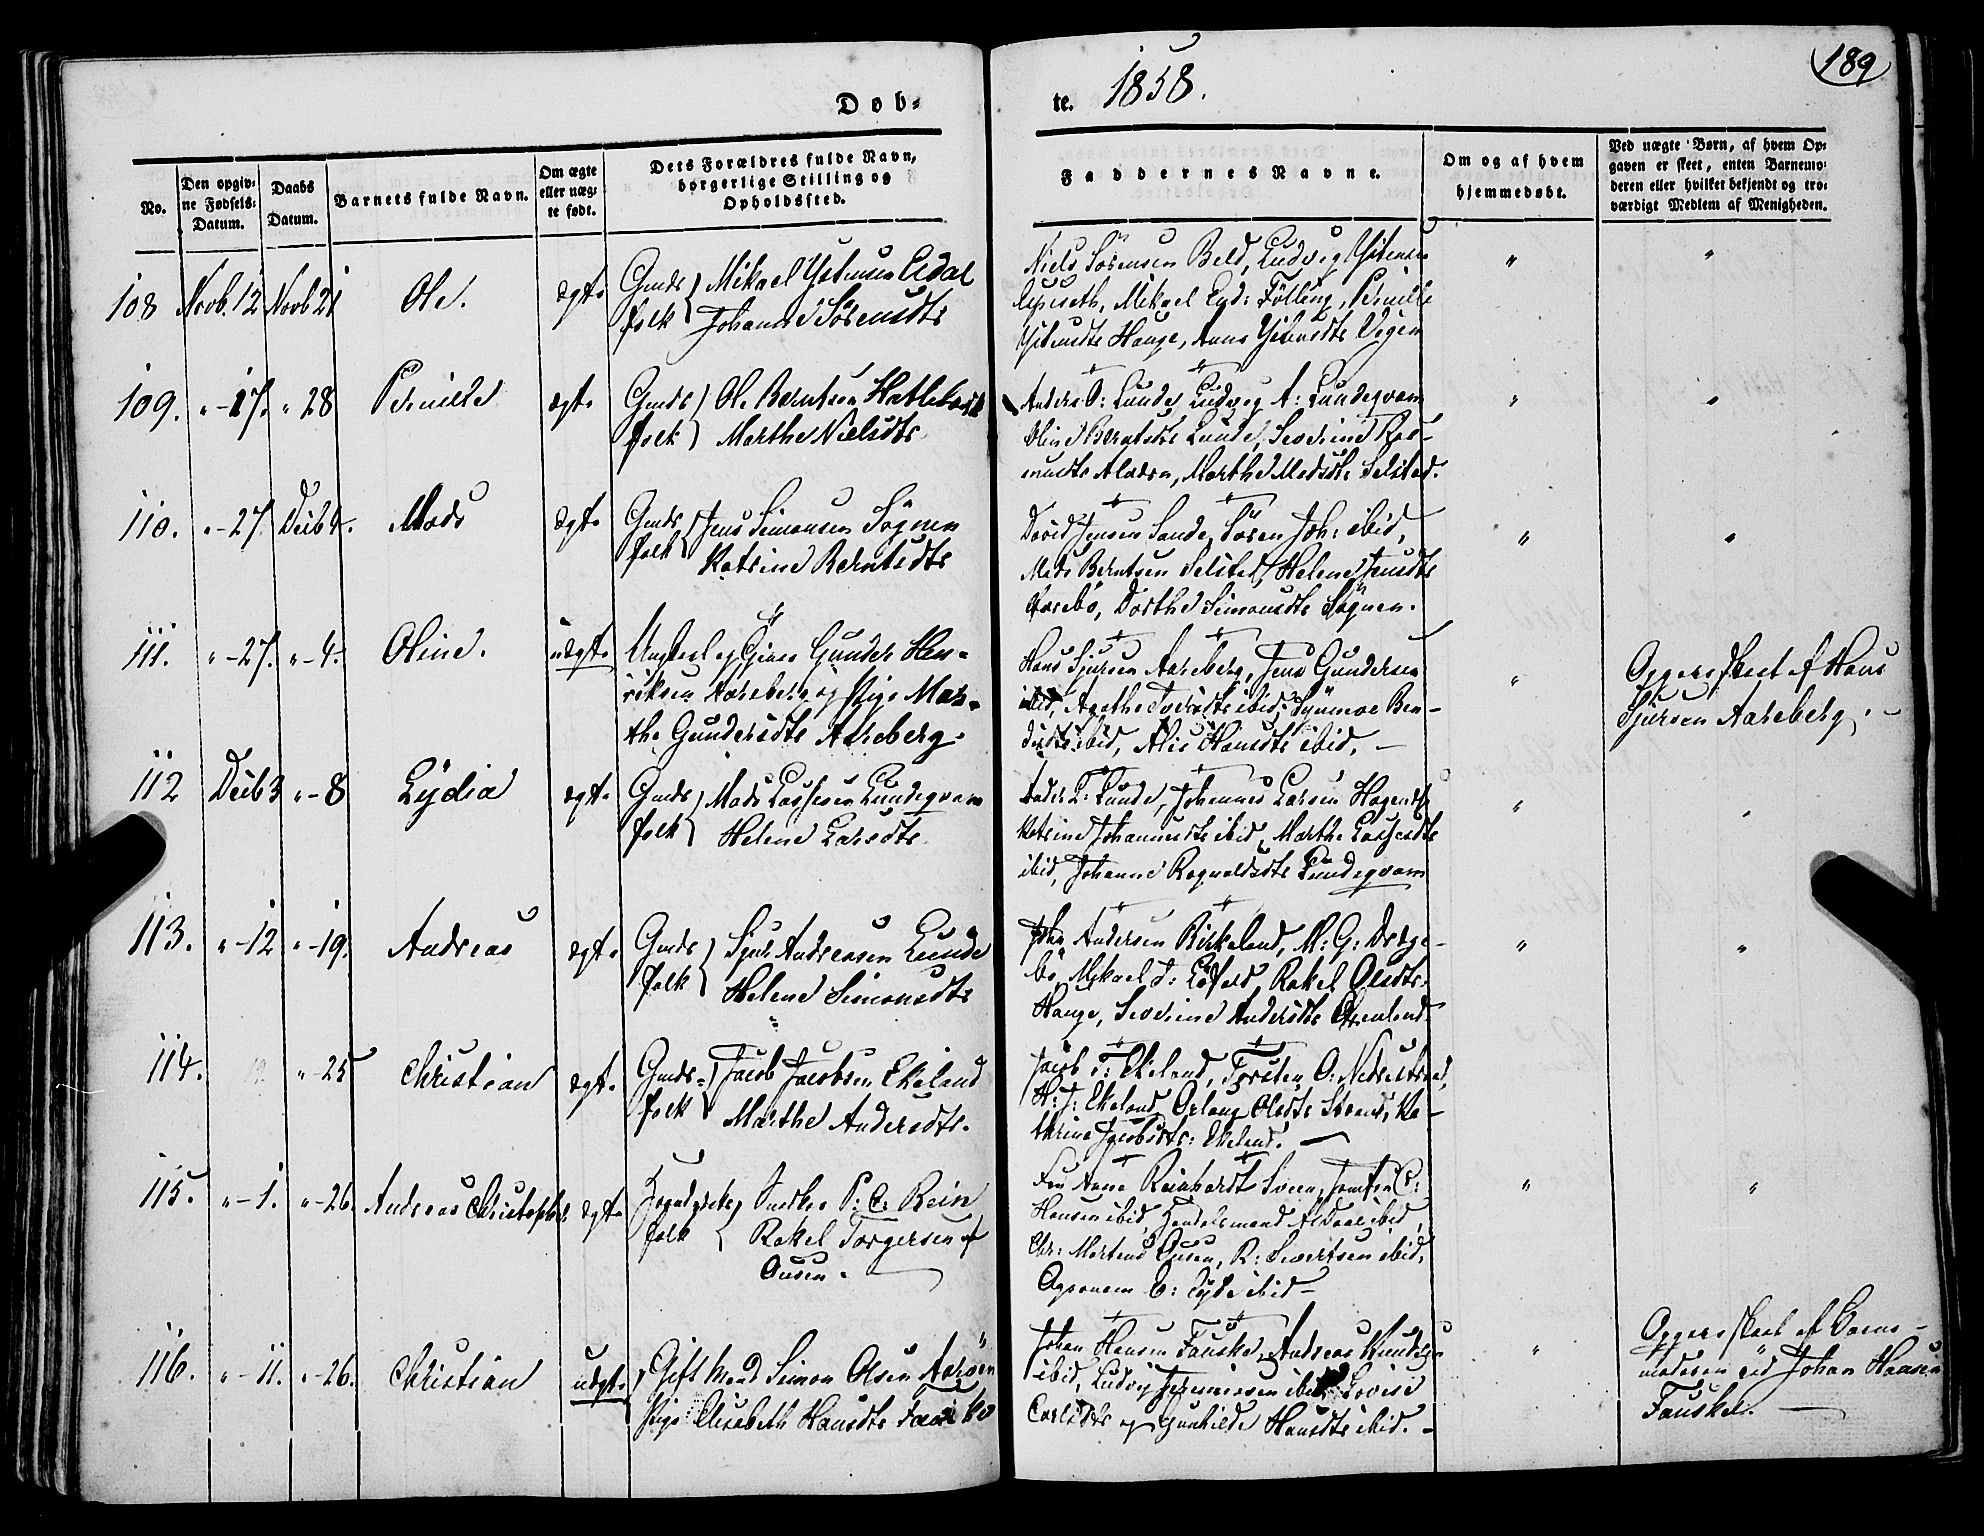 189
Døb-
te. 1858.
No.
Den opgiv-
ne Fødsels-
Datum.
Daabs
Datum.
Barnets fulde Navn.
Om ægte
eller uæg-
te født.
Dets Forældres fulde Navn,
borgerlige Stilling og
Opholdssted.
Faddernes Navne.
Om og af hvem
hjemmedøbt.
Ved uægte Børn, af hvem Op-
gaven er skeet, enten Barnemo-
deren eller hvilket bekjendt og tro-
værdigt Medlem af Menigheden.
108 Novb. 12 Novb 21 Ole. ægte Gmds
folk Mikael
Johanne Sørensdtr
Niels Sørensen Ludvig
Mikael Følling, Pernille
Hauge, Anna
109. " - 17. " 28 Pernille ægte Gmds
folk Ole Berntsen
Marthe Nielsdtr
Anders O: Lunde, Ludvig A: Lundeqvam
Oline Berntsdtr Lunde, Severine
Marthe Madsdtr Selstad.
110. " - 27. Decb 4. Mads ægte Gmds
folk Jens Simonsen Sögnen
Katrine Berntsdtr
David Jensen Sande, Sören Joh: ibid,
Mads Berntsen Selstad, Helene Jensdtr
Dorthe Simonsdtr Sögnen.
111. " - 27. " - 4. Oline. uægte Gunder Hen-
riksen Aareberg og Pige Mar-
the Gundersdtr Aareberg.
Hans Sjursen Aareberg, Jens Gundersen
ibid, Agathe ibid, Synneve Ben-
ibid, Alis Hansdtr ibid. -
Opgave skeet af Hans
Sjursen Aareberg. -
112 Decb 3 " - 8 Lydia ægte Gmds
folk Mads Lassesen Lundeqvam
Helene Larsdtr.
Anders L: Lunde, Johannes Larsen
Katrine Johannesdtr ibid, Marthe Lassesdtr
ibid, Johanne Ragnvaldsdtr Lundeqvam
113. " - 12 " - 19. Andreas ægte Gmds
folk Sjur Andreasen Lunde
Helene Simonsdtr
Andersen Birkeland, M: G: Dræge-
bö, Mikael J: Rakel Olsdtr
Hauge, Severine Andersdtr
114. " - 25 Christian ægte Gmds-
folk Jacob Jacobsen Ekeland
Marthe Andersdtr.
Jacob T: Ekeland, Torsten O: Nedrestrand,
H: J: Ekeland, Olsdtr Strand, Ka-
thrine Jacobsdtr: Ekeland.
115. " - 1. " - 26. Andreas Christopher ægte
folk P: C: Rein
Rakel Torgersen af
Ousen. -
Fru Anna Reinhardt Sveen, Jomfru C:
Hansen ibid, Handelsmand A: Daae ibid,
Chr: Martens Ousen, R: Sivertsen ibid,
Agronom ibid -
116. " - 11. " - 26. Christian uægte Gift Mand Simon Olsen
Pige Elisabeth Hansdtr Fauske
Johan Hansen Fauske, Andreas Knudsen
ibid, Ludvig ibid, Lovise
Carlsdtr og Gunhilde Hansdtr ibid. -
Opgave skeet af Barne-
moderen ved Johan Hansen
Fauske. -